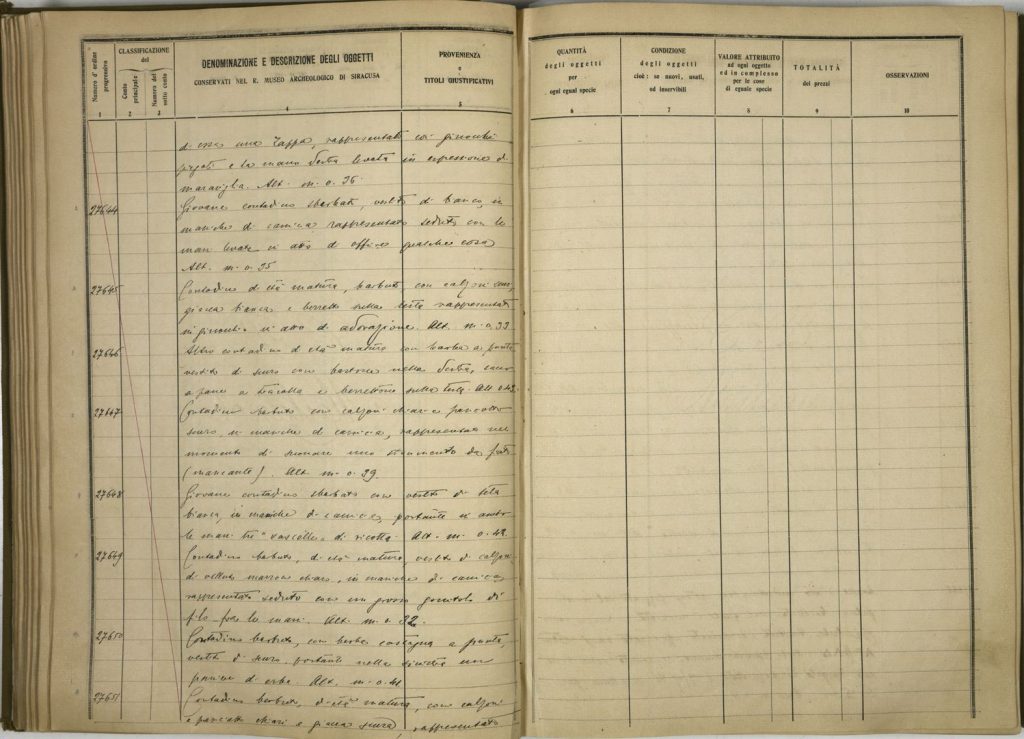 Numero d'ordine progressivo
CLASSIFICAZIONE
del
Conto principale
Numero del sotto conto
DENOMINAZIONE E DESCRIZIONE DEGLI OGGETTI
CONSERVATI NEL R. MUSEO ARCHEOLOGICO DI SIRACUSA
PROVENIENZA
e
TITOLI GIUSTIFICATIVI
1 2 3 4 5
di esse una zappa, rappresentati coi ginocchi
piegati e la mano destra levata in espressione di
maraviglia. Alt. m. 0.36.
27644 Giovane contadino sbarbato, vestito di bianco, in
maniche di camicia rappresentato seduto con le
mani levate in atto di offrire qualche cosa
Alt. m. 0.35
27645 Contadino di età matura, barbuto, con calzoni
giacca bianca e berretto sulla testa rappresentato
in ginocchio in atto di adorazione. Alt. m. 0.33
27646 Altro contadino di età matura con barba a punta
vestito di scuro con bastone nella destra,
a pane a tracolla e berrettone sulla testa. Alt. 0.42
27647 Contadino barbuto con calzoni chiari e panciotto
scuro, in maniche di camicia, rappresentato nel
momento di suonare uno strumento da fiato
(mancante). Alt. m. 0.39
27648 Giovane contadino sbarbato con vestito di tela
bianca, in maniche di camicia, portante in ambo
le mani tre "vascelle" di ricotta. Alt. m. 0.42
27649 Contadino barbuto, di età matura, vestito di calzoni
di velluto marrone chiaro, in maniche di camicia,
rappresentato seduto con un grosso gomitolo di
filo fra le mani. Alt. m. 0.32
27650 Contadino barbuto, con barba castagna a punta,
vestito di scuro portante nella sinistra un
paniere di erbe. Alt. m. 0.41
27651 Contadino barbuto, di età matura, con calzoni
e panciotto chiari e giacca scura, rappresentato
QUANTITÀ
degli oggetti
per
ogni egual specie
CONDIZIONE
degli oggetti
cioè: se nuovi, usati,
od inservibili
VALORE ATTRIBUITO
ad ogni oggetto
ed in complesso
per le cose
di eguale specie
TOTALITÀ
dei prezzi
OSSERVAZIONI
6 7 8 9 10